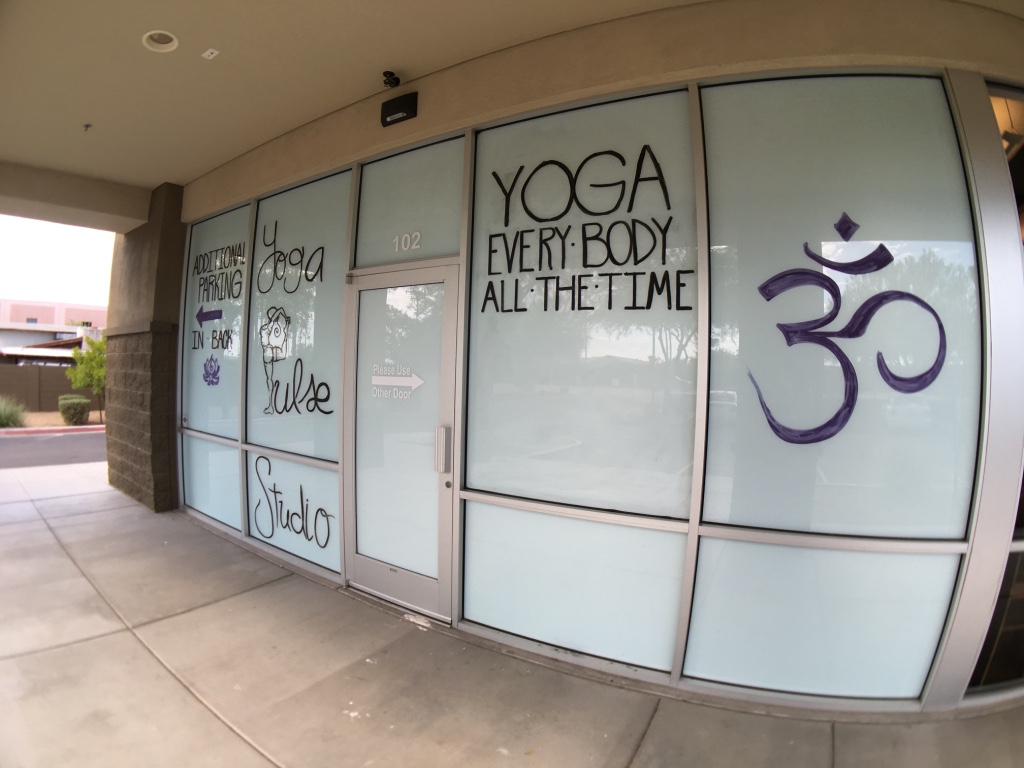 ADDITIONAL
PARKING
IN BACK
Yoga
Pulse
Studio
102
Please Use
Other Door
YOGA
EVERY·BODY
ALL·THE·TIME
ॐ